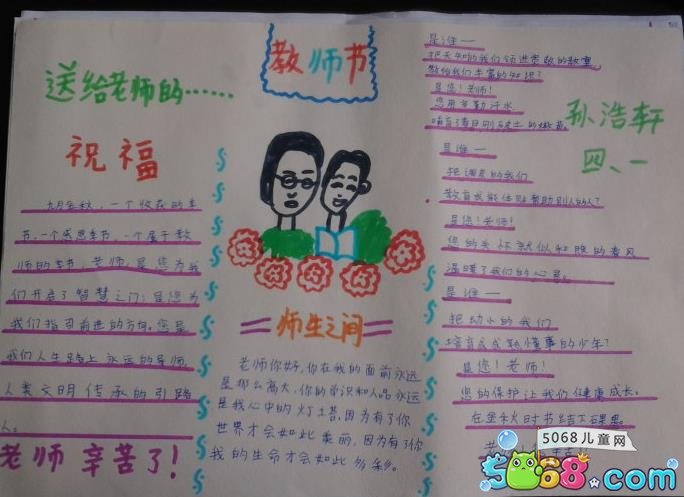 教师节
送给老师的……
祝福
九月金秋,一个收获的季
节,一个感恩季节,一个属于教
师的季节,老师,是您为我
们开启了智慧之门;是您为
我们指引前进的方向。您是
我们人生路上永远的导师,
人类文明传承的引路
人。
老师辛苦了!
师生之间
老师你好,你在我的面前永远
是那么高大,你的学识和人品永远
是我心中的灯塔,因为有了你
世界才会如此美丽,因为有了你
我的生命才会如此多彩。
孙浩轩
四、一
是谁——
把无知的我们领进宽敞的教室,
教给我们丰富的知识?
是您!老师!
您用辛勤汗水
哺育了春日刚破土的嫩苗。
是谁——
把调皮的我们
教育成能体贴帮助别人的人?
是您!老师!
您的关怀就似和暖的春风
温暖了我们的心灵。
是谁——
把幼小的我们
培育成成熟懂事的少年?
是您!老师!
您的保护让我们健康成长。
在金秋时节结下硕果。
5068儿童网
5068.com